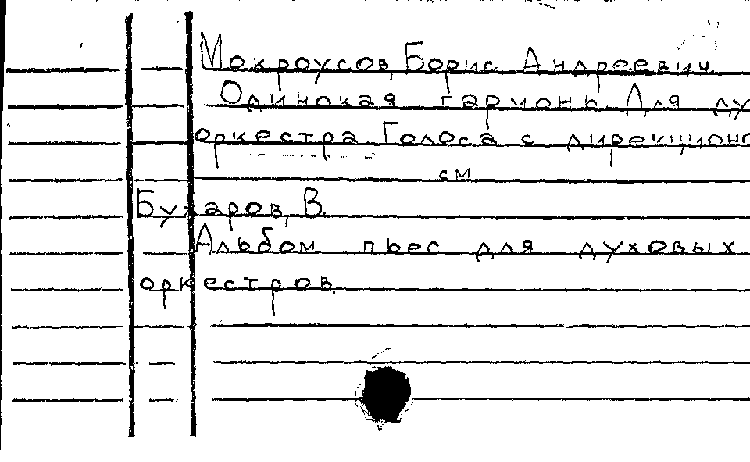 Мокроусов, Борис Андреевич
Одинокая гармонь. Для ду
оркестра. Голоса с дирекционо
см
Бухаров, В.
Альбом пьес для духовых
оркестров.